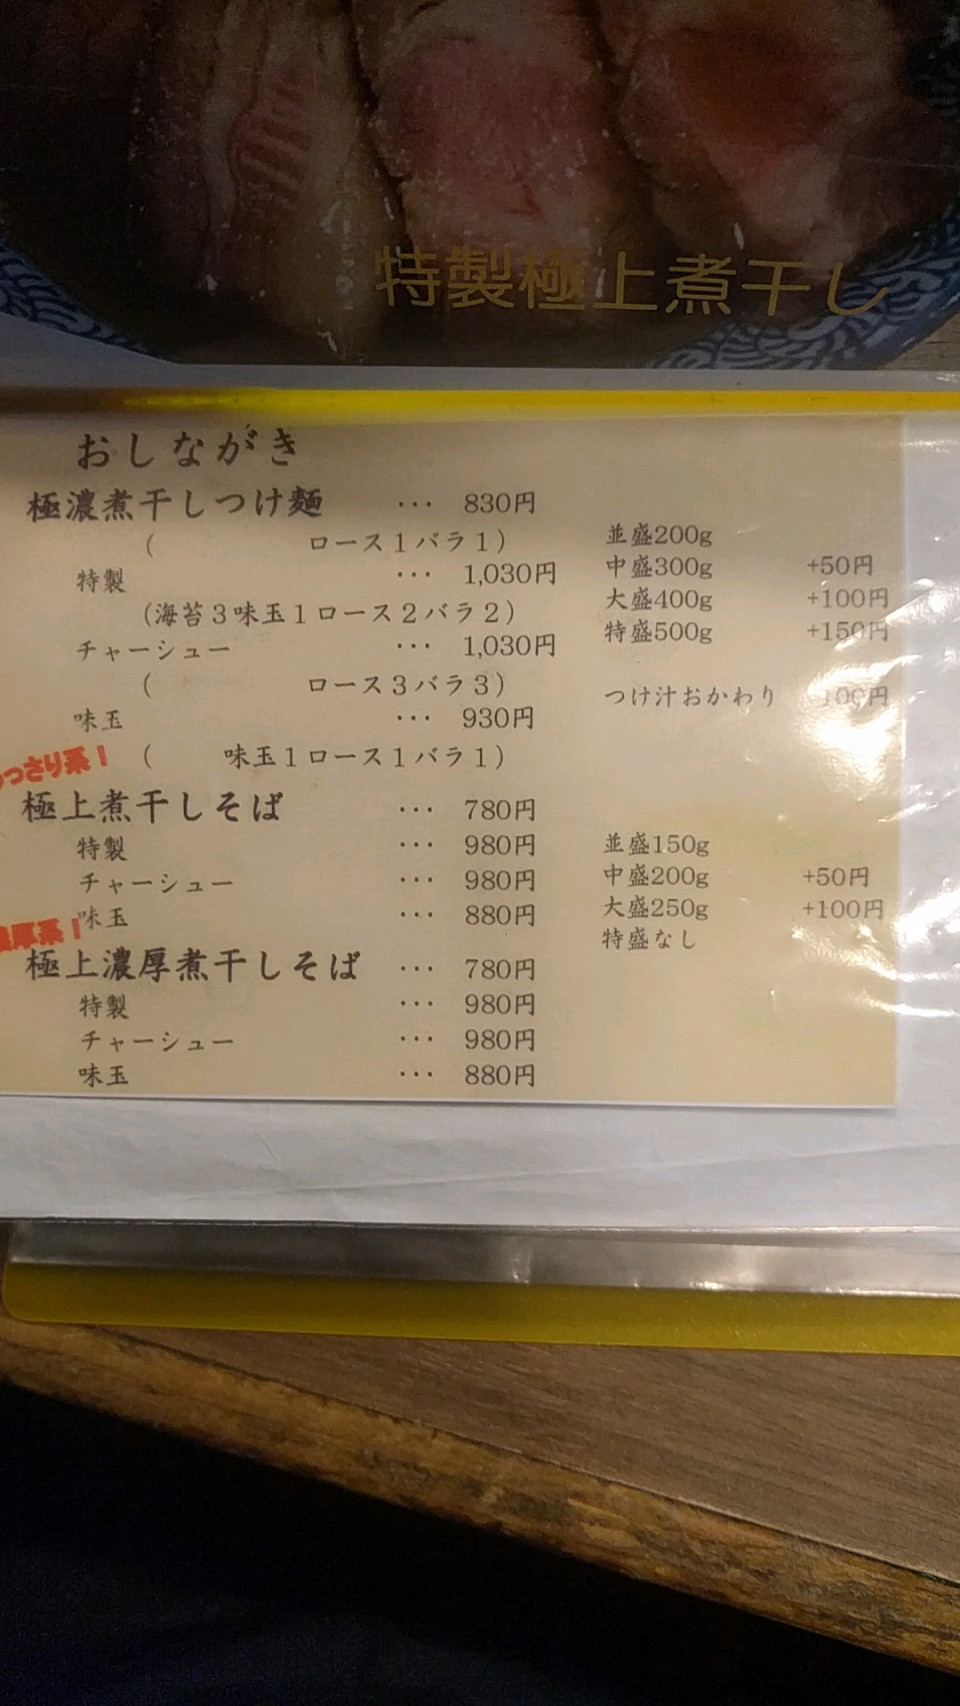 特製極上煮干し
おしながき
極濃煮干しつけ麺 ··· 830円
( ロース1バラ1)
特製 ··· 1,030円
(海苔3味玉1ロース2バラ2)
チャーシュー ··· 1,030円
( ロース3バラ3)
味玉 ··· 930円
( 味玉1ロース1バラ1)
並盛200g
中盛300g +50円
大盛400g +100円
特盛500g +150円
つけ汁おかわり 100円
っさり系!
極上煮干しそば ··· 780円
特製 ··· 980円
チャーシュー ··· 980円
味玉 ··· 880円
並盛150g
中盛200g +50円
大盛250g +100円
特盛なし
厚系!
極上濃厚煮干しそば ··· 780円
特製 ··· 980円
チャーシュー ··· 980円
味玉 ··· 880円